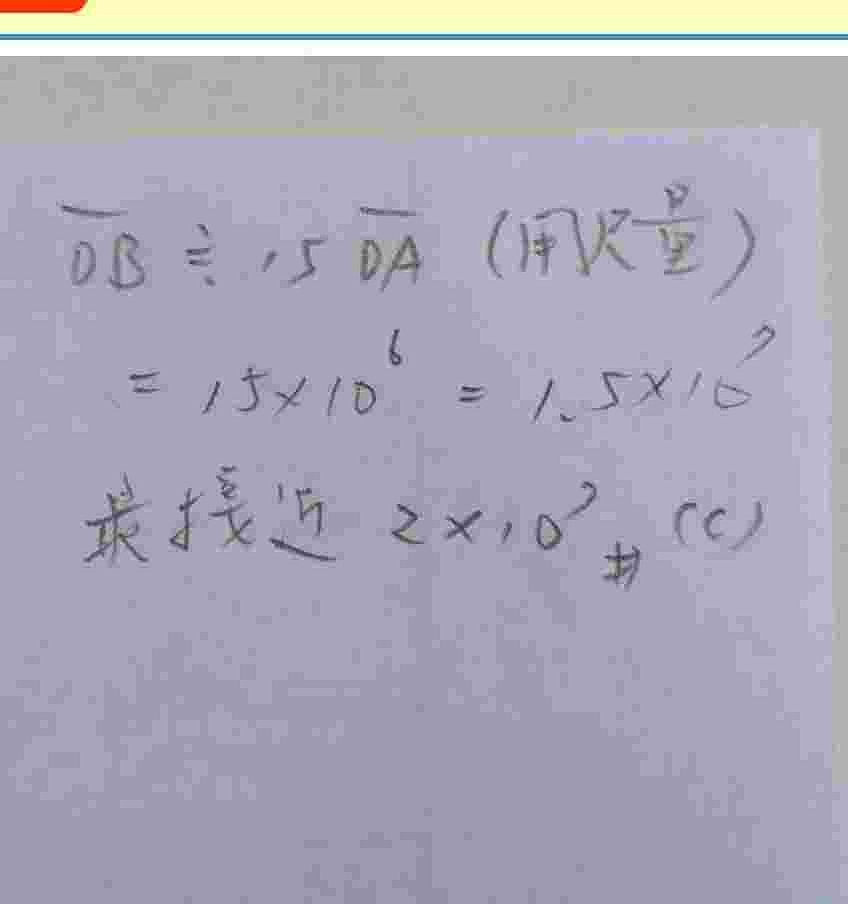 OB ≑ 15 OA (用尺量)
= 15×10⁶ = 1.5×10⁷
最接近 2×10⁷ # (C)